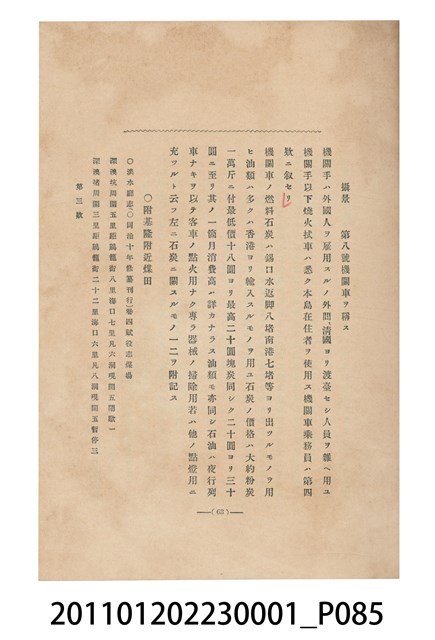 備景　第八號機關車ヲ牽ス
機關手ハ外國人ヲ雇用スルノ外間、清國ヨリ渡臺セシ人員ヲ雜ヘ用ユ
機關手以下燒火拭車ハ悉ク本島在住者ヲ使用ス機關車乘務員ハ第四
款ニ叙セリ
機關車ノ燃料石炭ハ錫口水返脚八堵南港七堵等ヨリ出ヅルモノヲ用
ヒ油類ハ多クハ香港ヨリ輸入スルモノヲ用ユ石炭ノ價格ハ大約粉炭
一萬斤ニ付最低價十八圓ヨリ最高二十圓塊炭同シク二十圓ヨリ三十
圓ニ至リ其ノ一箇月消費高ハ詳カナラス油類モ亦同シ石油ハ夜行列
車ナキヲ以テ客車ノ點火用ナク專ラ器械ノ掃除用若ハ他ノ點燈用ニ
充ツルト云フ左ニ石炭ニ關スルモノ一二ヲ附記ス
〇附基隆附近煤田
〇淡水廳志(〇同治十年修纂刊行)卷四賦役志煤場
深澳坑周圍五里距鷄籠街八里海口七里凡六洞現開五閉歇一
深澳堵周圍三里距鷄籠街二十二里海口六里凡八洞現開五暫停三
第三款
(63)
201101202230001_P085